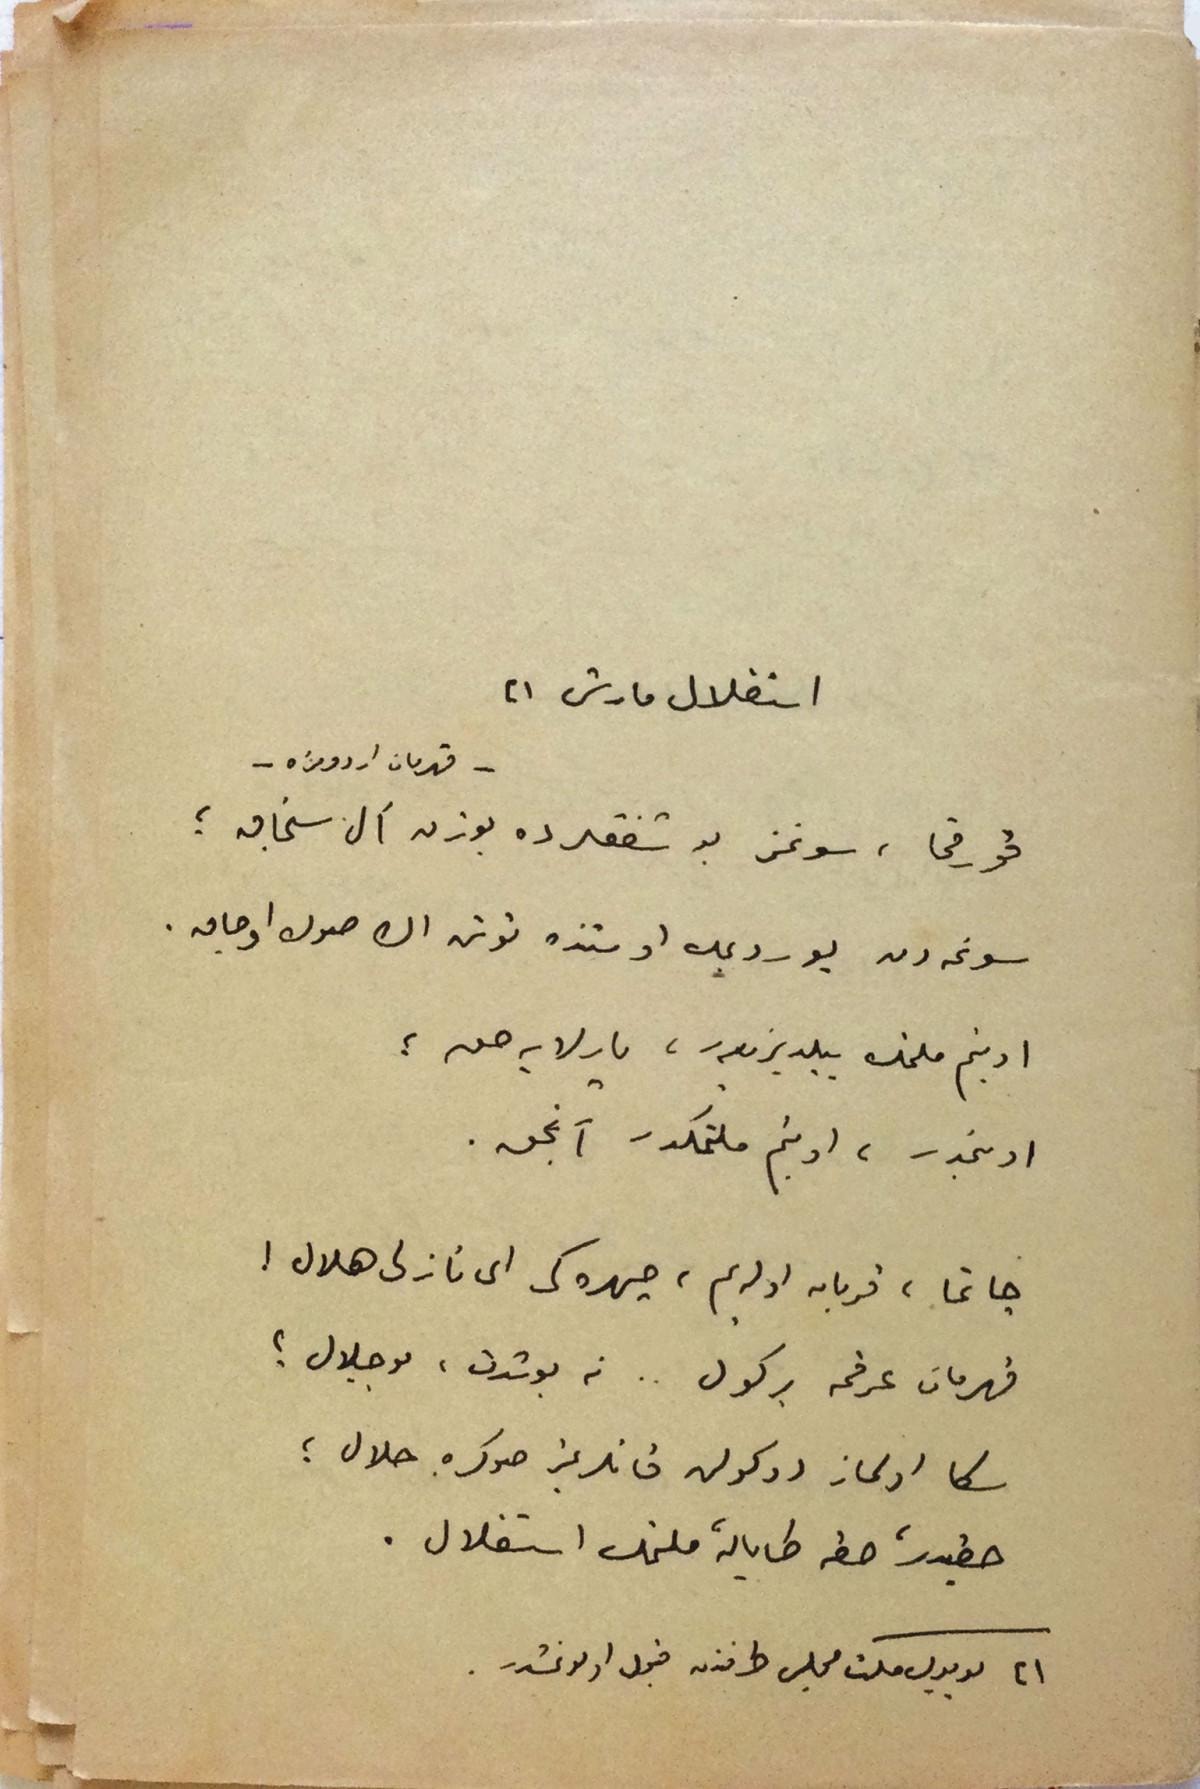 استقلال مارشی (١)
– قهرمان اردومزه –
قورقما ، سونمز بو شفقلرده یوزن آل سنجاق ؛
سونمه‌دن یوردیمك اوستنده توتن اڭ صوڭ اوجاق .
او بنم ملتمك ییلدیزیدر ، پارلایه‌جق ؛
او بنمدر ، او بنم ملتمكدر آنجق .
چاتما ، قربان اوله‌یم ، چهره‌كی ای نازلی هلال !
قهرمان عرقمه بر كول .. نه بو شدت ، بو جلال ؟
سكا اولماز دوكولن قانلریمز صوكره حلال ؛
حقیدر ، حقه طاپان ، ملتمك استقلال .
(١) بویوك ملت مجلسی طرفندن قبول اولونمشدر .